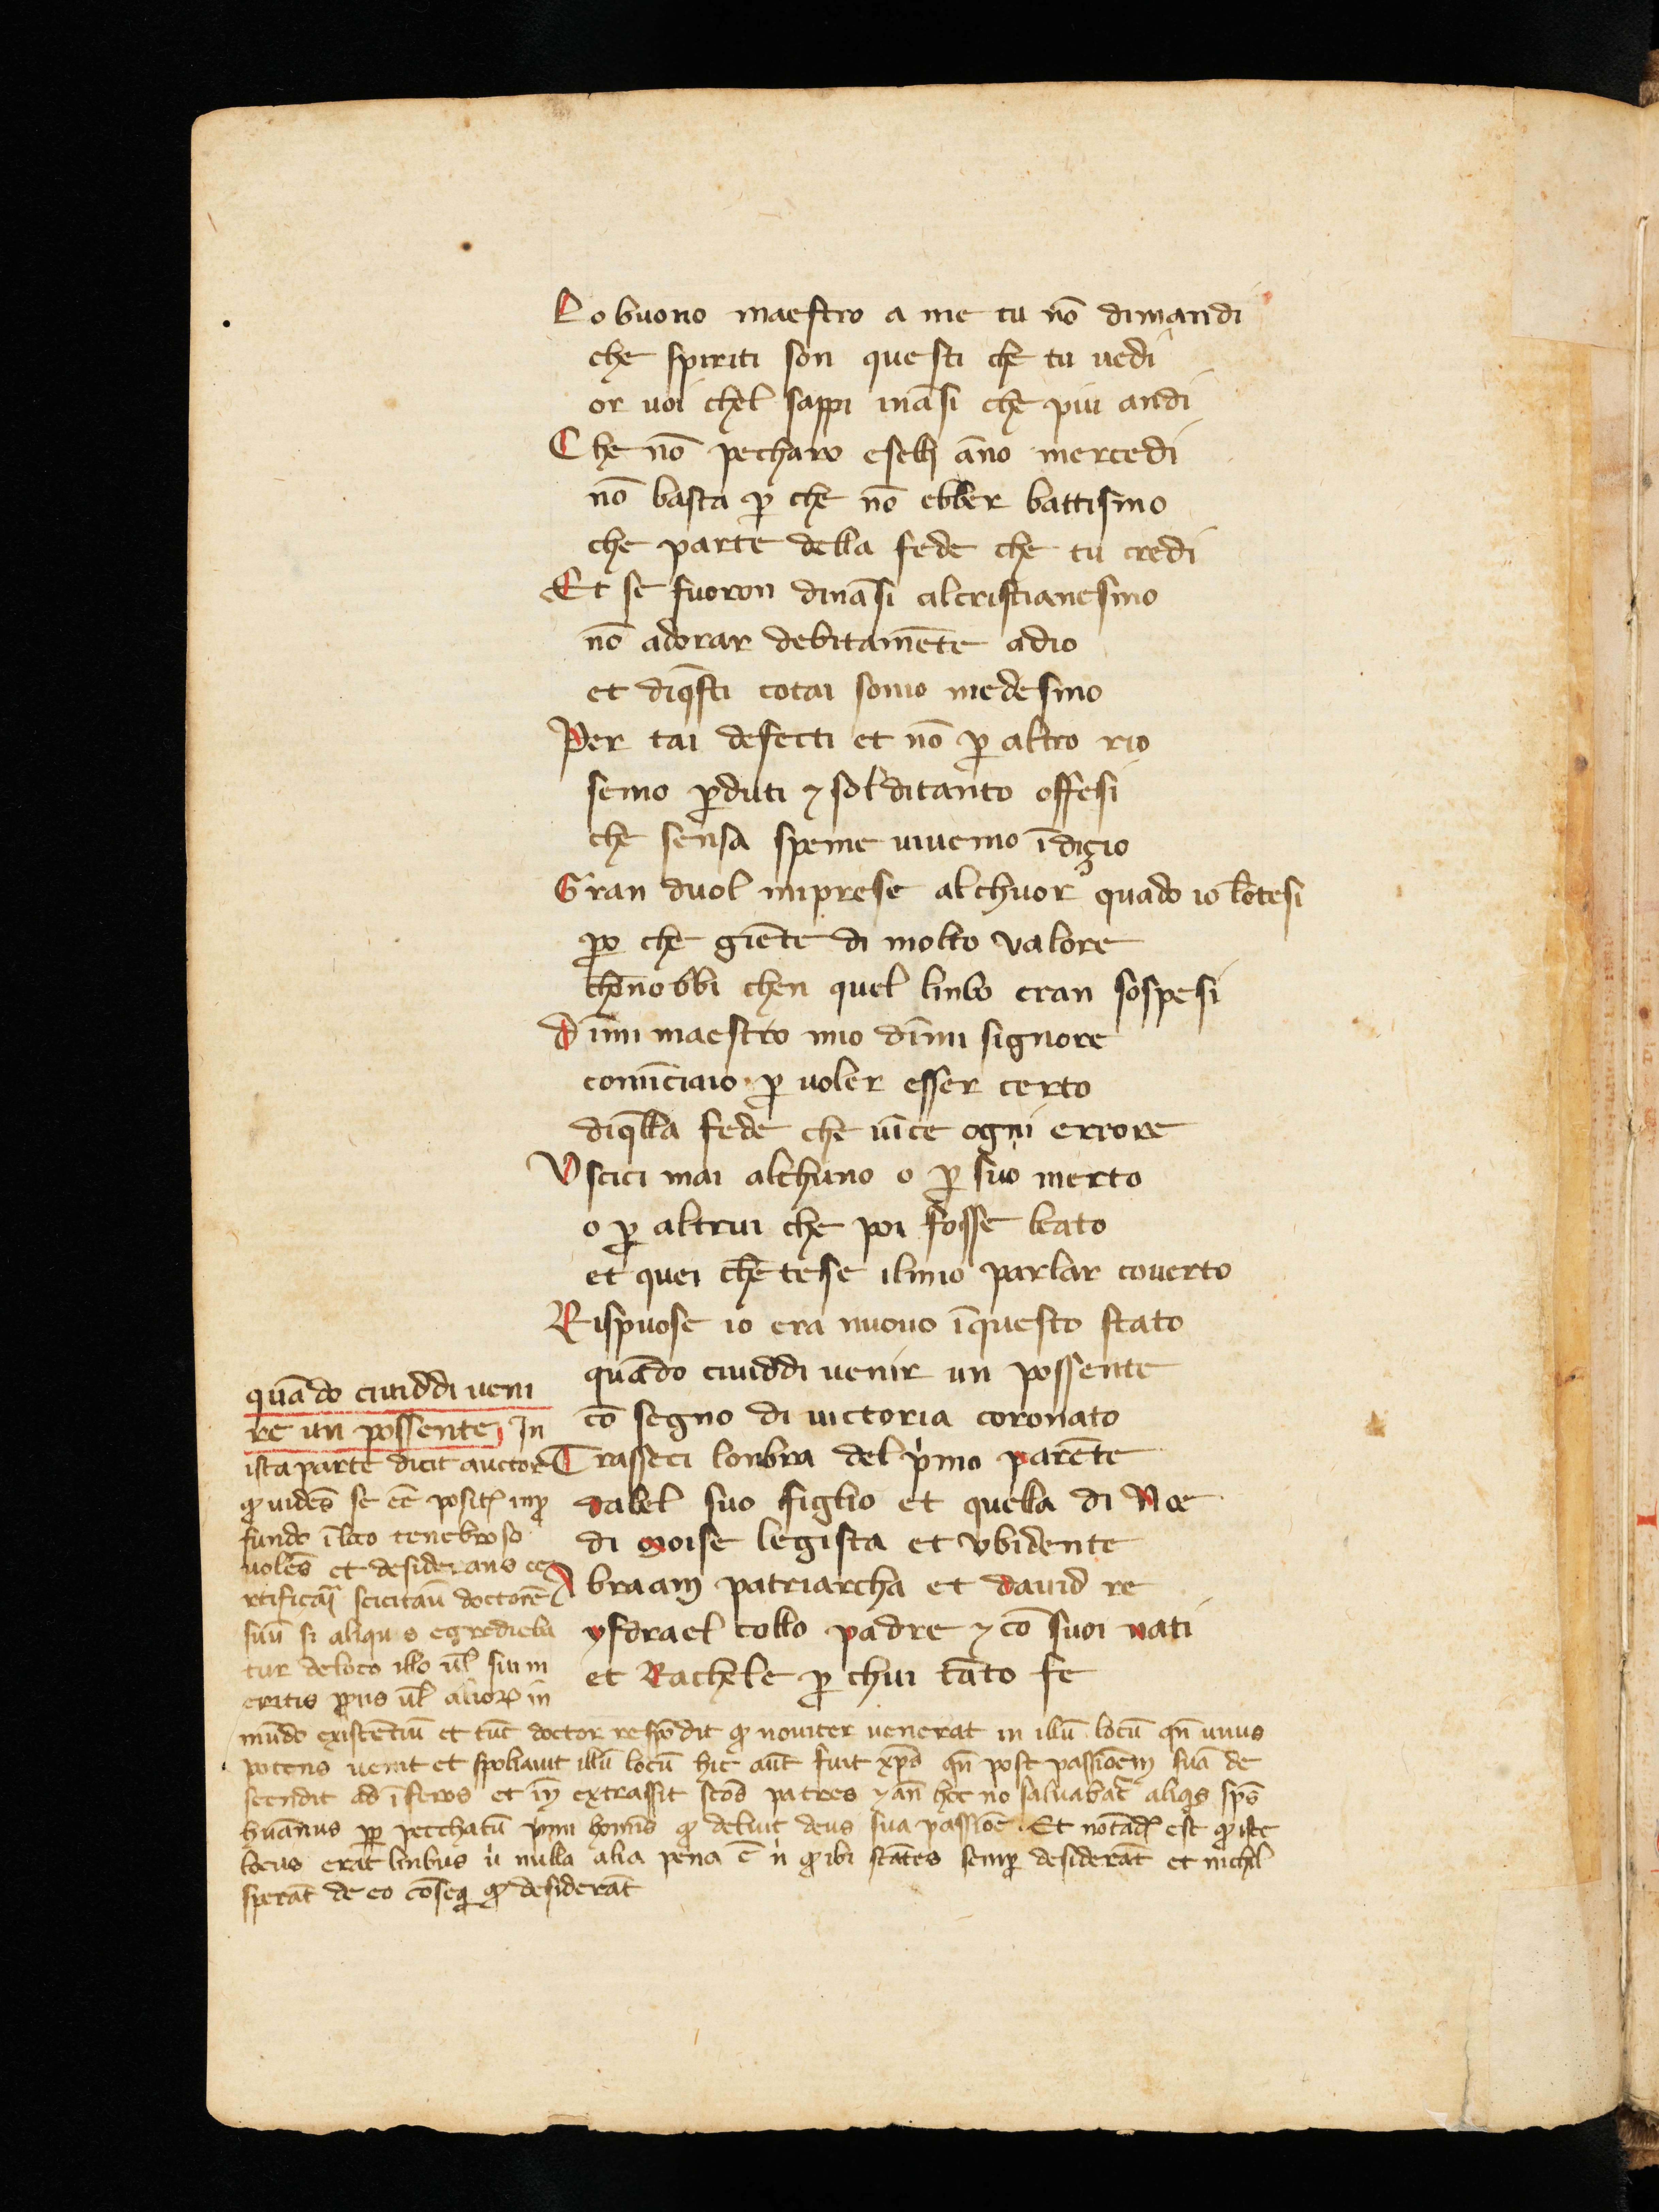 Lo buono maestro a me tu nō dimandi
che spiriti son questi che tu uedi
or uoi chel sappi ināsi che piu andi
Che nō pecharo eselli āno mercedi
nō basta p̄ che nō ebber battismo
che parte della fede che tu credi
Et se fuoron dināsi alcristianesmo
nō adorar debitamēte adio
et diq̄sti cotai sono medesmo
Per tai defecti et nō p̄ altro rio
semo p̄duti ⁊ sol ditanto offesi
che sensa speme uiuemo īdiçio
Gran duol mi prese al chuor quādo io lōtesi
po che giēte di molto valore
chōnobbi chen quel linbo eran sospesi
Dīmi maestro mio dīmi signore
comīciaio p̄ uoler esser certo
diq̄lla fede che uīce ogni errore
Vscici mai alchuno o p̄ suo merto
o p̄ altrui che poi fosse beato
et quei chētese ilmio parlar couerto
Rispuose io era nuouo īquesto stato
quādo ciuiddi uenir un possente
cō segno di uictoria coronato
Trasseci lonbra del pͥmo parēte
dabel suo figlio et quella di Noe
di moise legista et vbidente
Abraam patriarcha et dauid re
ysdrael collo padre ⁊ cō suoi nati
et Rachele p̄ chui tāto fe
quādo ciuiddi ueni
re un possente In
ista parte dicit auctor
uidēs se ēe
fundo ī loco tenebroso
uolēs et desiderans ce
doctorē
suū si aliquis egredieba
tur de loco illo ul̄ sui m
eritis ul̄ in
mūdo existētiū et tūc doctor respōdit noviter uenerat in illū locū qn̄ unus
potens uenit et spoliauit illū locū hic aūt fuit xp̄s qn̄ post passiōem suā de
scendit ad īferos et extrassit scōs patres ⁊ an̄ hoc nō saluabat̄ sp̄s
huānus pp̄ pecchatū pͥmi deluit deus sua passiōe. Et est iste
locus erat linbus nulla alia pena ē ibi stātes semp̄ desiderāt et nichil
sperāt de eo cōseq desiderāt